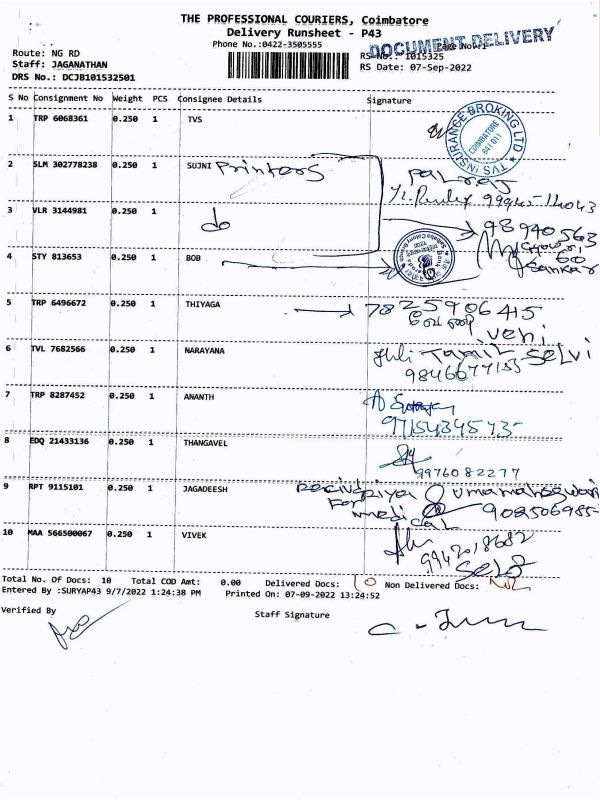 THE PROFESSIONAL COURIERS, Coimbatore
Delivery Runsheet - P43
Phone No.:0422-3505555
DOCUMENT DELIVERY
Page No.:1
Route: NG RD
RS No.: 1015325
Staff: JAGANATHAN
RS Date: 07-Sep-2022
DRS No.: DCJB101532501
S No Consignment No Weight PCS Consignee Details Signature
1 TRP 6068361 0.250 1 TVS
TVS INSURANCE BROKING LTD
COIMBATORE
641 011
2 SLM 302778238 0.250 1 SUJNI Printers
3 VLR 3144981 0.250 1 do
4 STY 813653 0.250 1 BOB
Sankar
5 TRP 6496672 0.250 1 THIYAGA
7825906415
veni
6 TVL 7682566 0.250 1 NARAYANA
Tamil Selvi
7 TRP 8287452 0.250 1 ANANTH
8 EDQ 21433136 0.250 1 THANGAVEL
9976082277
9 RPT 9115101 0.250 1 JAGADEESH
Umamaheswari
For
medical
10 MAA 566500067 0.250 1 VIVEK
9942018682
Total No. Of Docs: 10 Total COD Amt: 0.00 Delivered Docs: 10 Non Delivered Docs: NIL
Entered By :SURYAP43 9/7/2022 1:24:38 PM Printed On: 07-09-2022 13:24:52
Verified By
Staff Signature